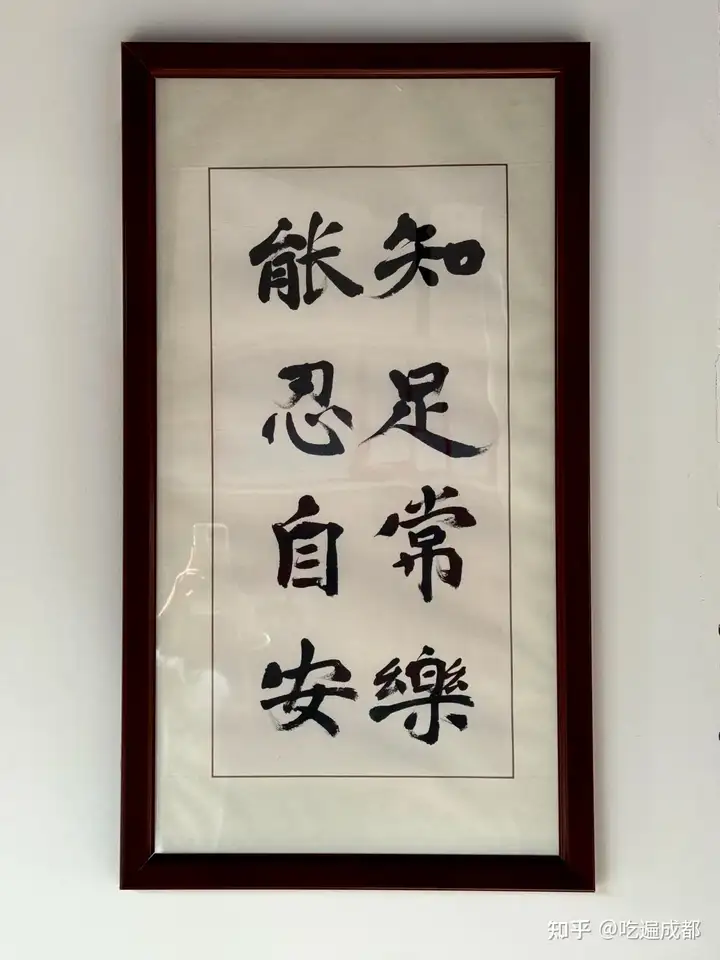 知足常樂
能忍自安
知乎 @吃遍成都